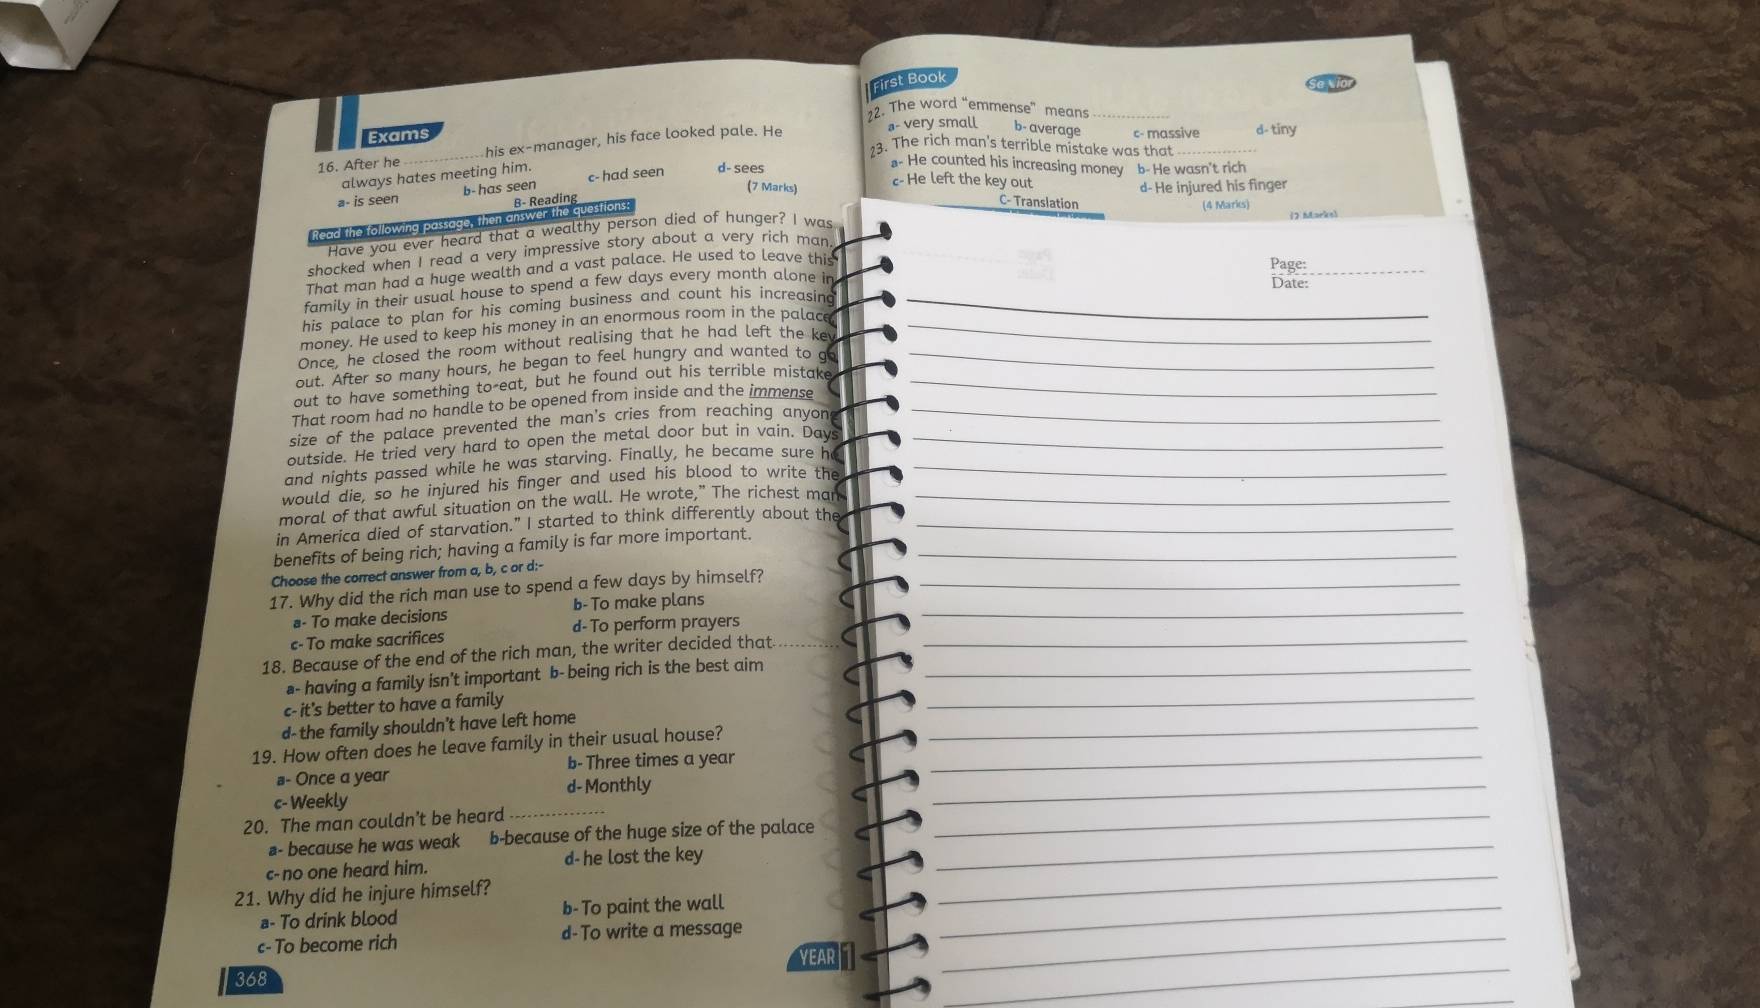 Exams
16. After he ............ his ex-manager, his face looked pale. He
always hates meeting him.
a- is seen b- has seen c- had seen d- sees
B- Reading (7 Marks)
Read the following passage, then answer the questions:
Have you ever heard that a wealthy person died of hunger? I was
shocked when I read a very impressive story about a very rich man.
That man had a huge wealth and a vast palace. He used to leave this
family in their usual house to spend a few days every month alone in
his palace to plan for his coming business and count his increasing
money. He used to keep his money in an enormous room in the palace
Once, he closed the room without realising that he had left the key
out. After so many hours, he began to feel hungry and wanted to go
out to have something to eat, but he found out his terrible mistake
That room had no handle to be opened from inside and the immense
size of the palace prevented the man's cries from reaching anyone
outside. He tried very hard to open the metal door but in vain. Days
and nights passed while he was starving. Finally, he became sure he
would die, so he injured his finger and used his blood to write the
moral of that awful situation on the wall. He wrote," The richest man
in America died of starvation." I started to think differently about the
benefits of being rich; having a family is far more important.
Choose the correct answer from a, b, c or d:-
17. Why did the rich man use to spend a few days by himself?
a- To make decisions b- To make plans
c- To make sacrifices d- To perform prayers
18. Because of the end of the rich man, the writer decided that ............
a- having a family isn't important b- being rich is the best aim
c- it's better to have a family
d- the family shouldn't have left home
19. How often does he leave family in their usual house?
a- Once a year b- Three times a year
c- Weekly d- Monthly
20. The man couldn't be heard ................
a- because he was weak b-because of the huge size of the palace
c- no one heard him. d- he lost the key
21. Why did he injure himself?
a- To drink blood b- To paint the wall
c- To become rich d- To write a message
368
YEAR 1
First Book
Senior
22. The word "emmense" means ............
a- very small b- average c- massive d- tiny
23. The rich man's terrible mistake was that ............
a- He counted his increasing money b- He wasn't rich
c- He left the key out d- He injured his finger
C- Translation (4 Marks)
(2 Marks)
Page:
Date: